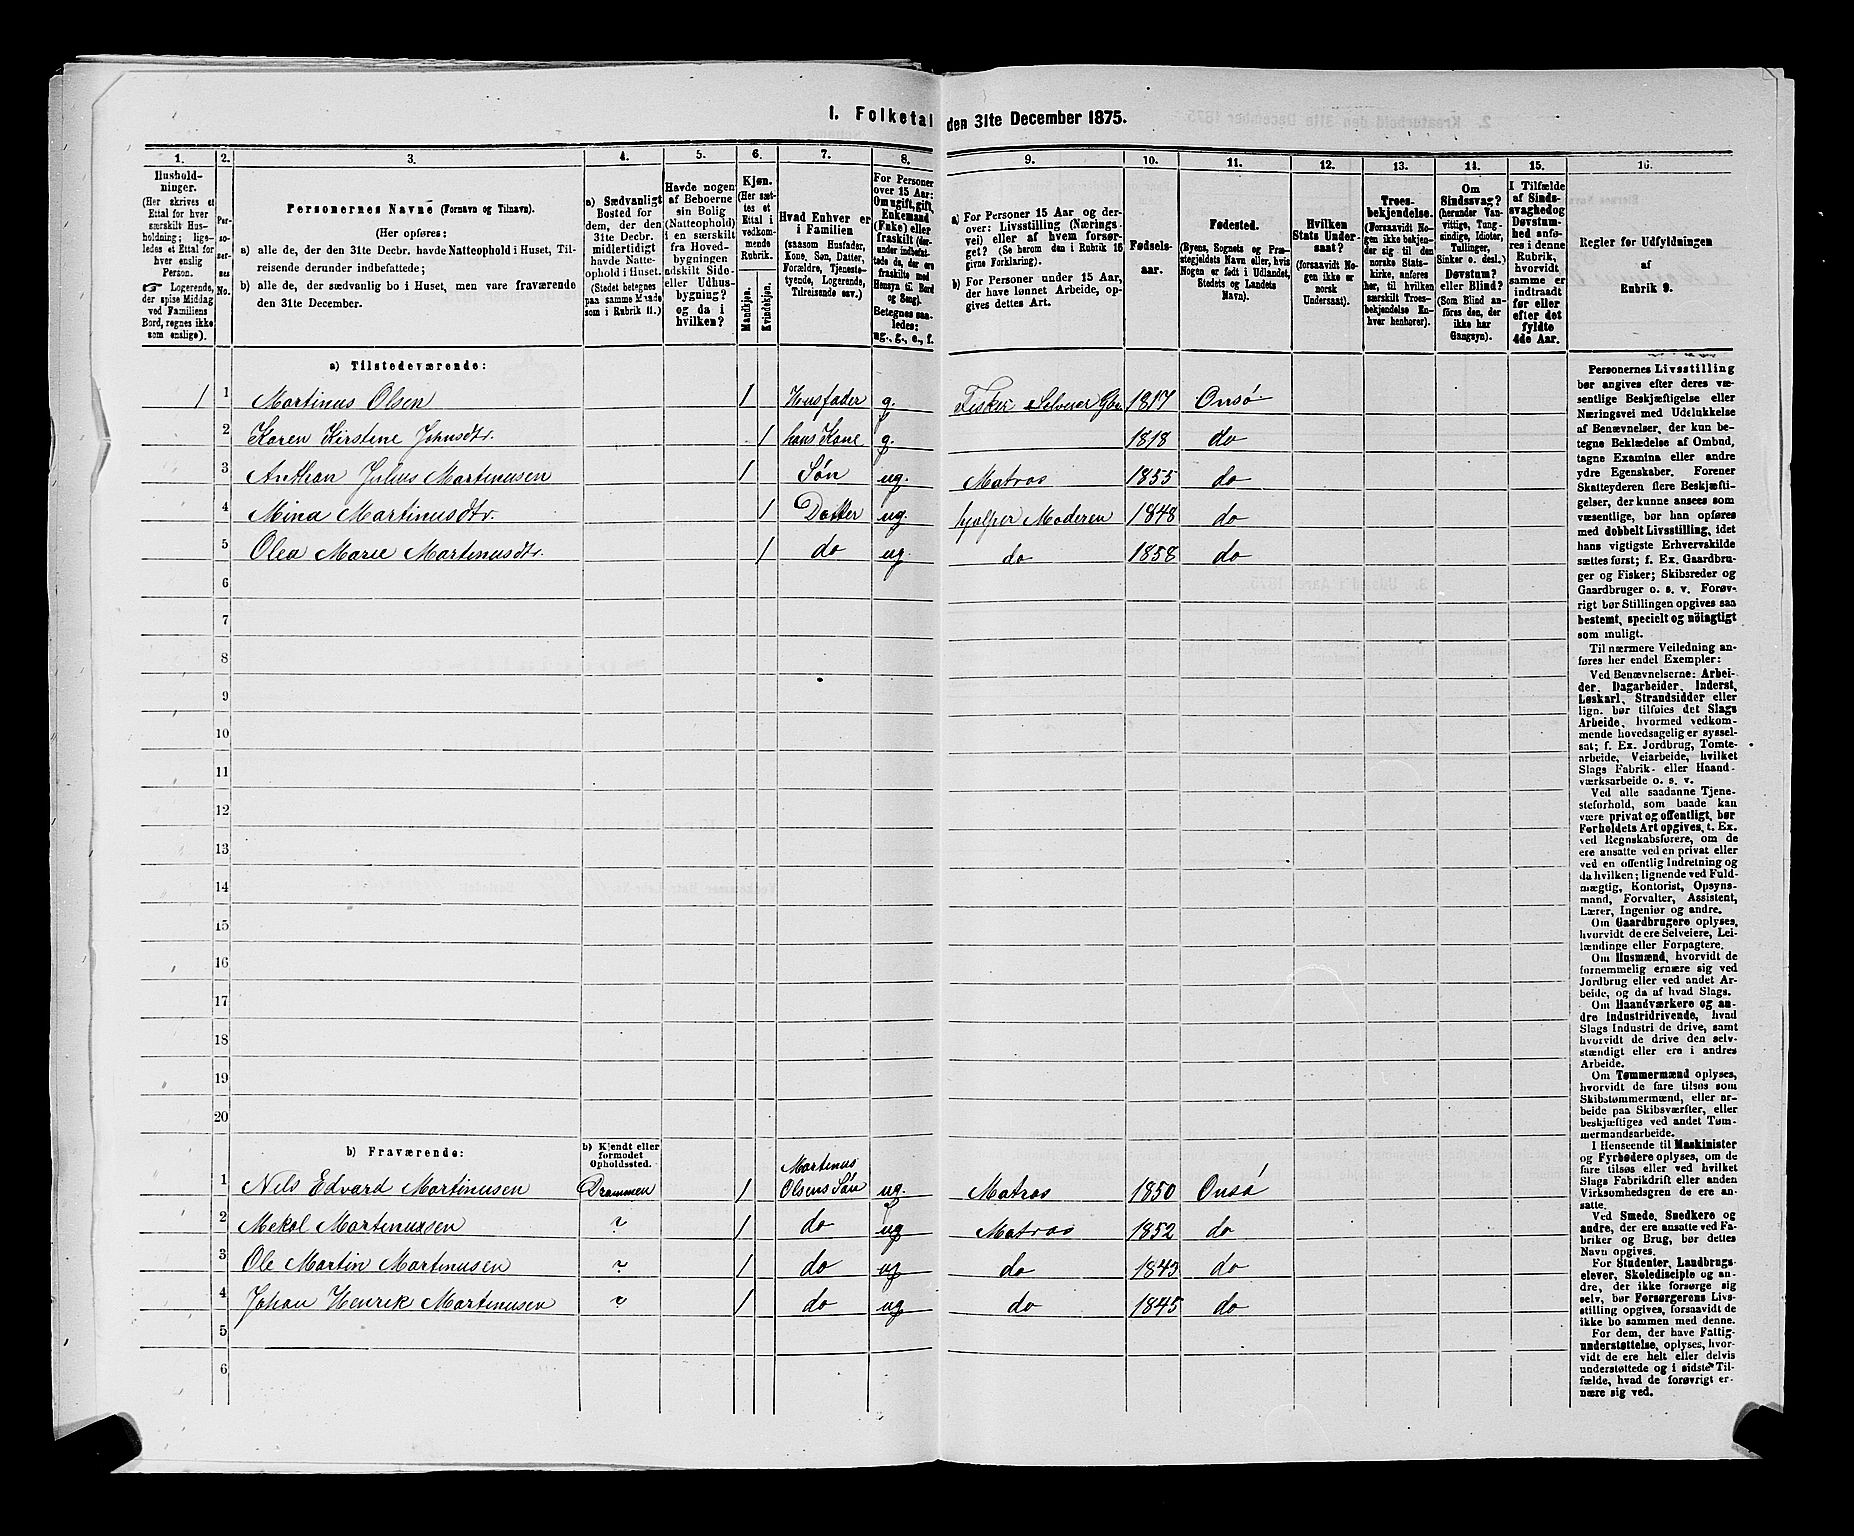 1. Folketal den 31te December 1875.
1. 2. 3. 4. 5. 6. 7. 8. 9. 10. 11. 12. 13. 14. 15. 16.
Hushold-
ninger.
(Her skrives et
Ettal for hver
særskilt Hus-
holdning; lige-
ledes et Ettal for
hver enslig
Person.
☞ Logerende,
der spise Middag
ved Familiens
Bord, regnes ikke
som enslige).
Per-
so-
ner-
nes
No.
Personernes Navne (Fornavn og Tilnavn).
(Her opføres:
a) alle de, der den 31te Decbr. havde Natteophold i Huset, Til-
reisende derunder indbefattede;
b) alle de, der sædvanlig bo i Huset, men vare fraværende
den 31te December.
a) Sædvanligt
Bosted for
dem, der den
31te Decbr.
midlertidigt
havde Natte-
ophold i Huset.
(Stedet betegnes
paa samme Maade
som i Rubrik 11.)
Havde nogen
af Beboerne
sin Bolig
(Natteophold)
i en særskilt
fra Hoved-
bygningen
adskilt Side-
eller Udhus-
bygning?
og da i
hvilken?
Kjøn.
(Her sæt-
tes et
Ettal i
vedkom-
mende
Rubrik.
Mandkjøn.
Kvindekjøn.
Hvad Enhver er
i Familien
(saasom Husfader,
Kone, Søn, Datter,
Forældre, Tjeneste-
tyende, Logerende,
Tilreisende osv.)
For Personer
over 15 Aar:
Om ugift, gift,
Enkemand
(Enke) eller
fraskilt (der-
under indbefat-
tede de, der ere
fraskilte med
Hensyn til Bord
og Seng).
Betegnes saa-
ledes:
ug., g., e., f.
a) For Personer 15 Aar og der-
over: Livsstilling (Nærings-
vei) eller af hvem forsør-
get? (Se herom den i Rubrik 16
givne Forklaring).
b) For Personer under 15 Aar,
der have lønnet Arbeide, op-
gives dettes Art.
Fødsels-
aar.
Fødested.
(Byens, Sognets og Præ-
stegjeldets Navn eller, hvis
Nogen er født i Udlandet,
Stedets og Landets
Navn).
Hvilken
Stats Under-
saat?
(forsaavidt No-
gen ikke er
norsk
Undersaat).
Troes-
bekjendelse.
(Forsaavidt No-
gen ikke bekjen-
der sig til den
norske Stats-
kirke, anføres
her, til hvilken
særskilt Troes-
bekjendelse En-
hver henhører).
Om
Sindssvag?
(herunder Van-
vittige, Tung-
sindige, Idioter,
Tullinger,
Sinker o. desl.)
Døvstum?
eller Blind?
(Som Blind an-
føres den, der
ikke har
Gangsyn).
I Tilfælde
af Sinds-
svaghed og
Døvstum-
hed anfø-
res i denne
Rubrik,
hvorvidt
samme er
indtraadt
før eller
efter det
fyldte
4de Aar.
Regler for Udfyldningen
af
Rubrik 9.
a) Tilstedeværende:
1 1 Martinus Olsen 1 Husfader g. Fisker Selveier Gbr. 1817 Onsø
2 Karen Kirstine Johnsdtr. 1 hans Kone g. 1818 do
3 Anthon Julius Martinusen 1 Søn ug. Matros 1855 do
4 Mina Martinusdtr. 1 Datter ug. hjelper Moderen 1848 do
5 Olea Marie Martinusdtr. 1 do ug do 1858 do
6
7
8
9
10
11
12
13
14
15
16
17
18
19
20
b) Fraværende:
b) Kjendt eller
formodet
Opholdssted.
1 Nils Edvard Martinusen Drammen 1 Martinus
Olsens Søn ug. Matros 1850 Onsø
2 Mekal Martinusen ? 1 do ug Matros 1852 do
3 Ole Martin Martinusen ? 1 do ug do 1843 do
4 Johan Henrik Martinusen ? 1 do ug do 1845 do
5
6
Personernes Livsstilling
bør angives efter deres væ-
sentlige Beskjæftigelse eller
Næringsvei med Udelukkelse
af Benævnelser, der kun be-
tegne Beklædelse af Ombud,
tagne Examina eller andre
ydre Egenskaber. Forener
Skatteyderen flere Beskjæfti-
gelser, der kunne ansees som
væsentlige, bør han opføres
med dobbelt Livsstilling, idet
hans vigtigste Erhvervskilde
sættes først; f. Ex. Gaardbru-
ger og Fisker; Skibsreder og
Gaardbruger o. s. v. Forøv-
rigt bør Stillingen opgives saa
bestemt, specielt og nöiagtigt
som muligt.
Til nærmere Veiledning an-
føres her endel Exempler:
Ved Benævnelserne: Arbei-
der, Dagarbeider, Inderst,
Løskarl, Strandsidder eller
lign. bør tilføies det Slags
Arbeide, hvormed vedkom-
mende hovedsagelig er syssel-
sat; f. Ex. Jordbrug, Tomte-
arbeide, Veiarbeide, hvilket
Slags Fabrik- eller Haand-
værksarbeide o. s. v.
Ved alle saadanne Tjene-
steforhold, som baade kan
være privat og offentligt, bør
Forholdets Art opgives, t. Ex.
ved Regnskabsførere, om de
ere ansatte ved en privat eller
ved en offentlig Indretning og
da hvilken; lignende ved Fuld-
mægtig, Kontorist, Opsyns-
mand, Forvalter, Assistent,
Lærer, Ingeniør og andre.
Om Gaardbrugere oplyses,
hvorvidt de ere Selveiere, Lei-
lændinge eller Forpagtere.
Om Husmænd, hvorvidt de
fornemmelig ernære sig ved
Jordbrug eller ved andet Ar-
beide, og da af hvad Slags.
Om Haandværkere og an-
dre Industridrivende, hvad
Slags Industri de drive, samt
hvorvidt de drive den selv-
stændigt eller ere i andres
Arbeide.
Om Tømmermænd oplyses,
hvorvidt de fare tilsøs som
Skibstømmermænd, eller ar-
beide paa Skibsværfter, eller
beskjæftiges ved andet Tøm-
mermandsarbeide.
I Henseende til Maskinister
og Fyrbødere oplyses, om de
fare tilsøs eller ved hvilket
Slags Fabrikdrift eller anden
Virksomhedsgren de ere an-
satte.
Ved Smede, Snedkere og
andre, der ere ansatte ved Fa-
briker og Brug, bør dettes
Navn opgives.
For Studenter, Landbrugs-
elever, Skoledisciple og an-
dre, der ikke forsørge sig
selv, bør Forsørgerens Livs-
stilling opgives, forsaavidt de
ikke bo sammen med denne.
For dem, der have Fattig-
understøttelse, oplyses, hvor-
vidt de ere helt eller delvis
understøttede og i sidste Til-
fælde, hvad de forøvrigt er-
nære sig ved.